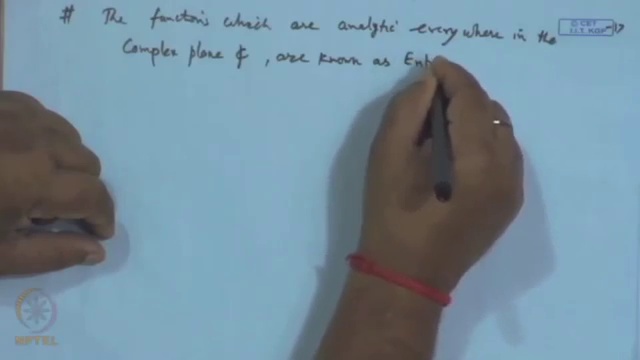 # The functions which are analytic everywhere in the
Complex plane ₵, are known as Ent
© CET
I.I.T. KGP
NPTEL